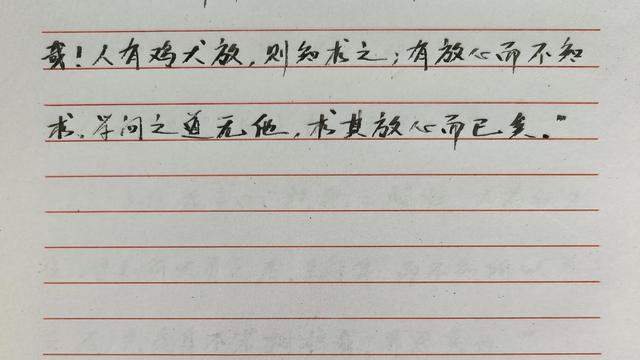 哉！人有鸡犬放，则知求之；有放心而不知
求。学问之道无他，求其放心而已矣。”